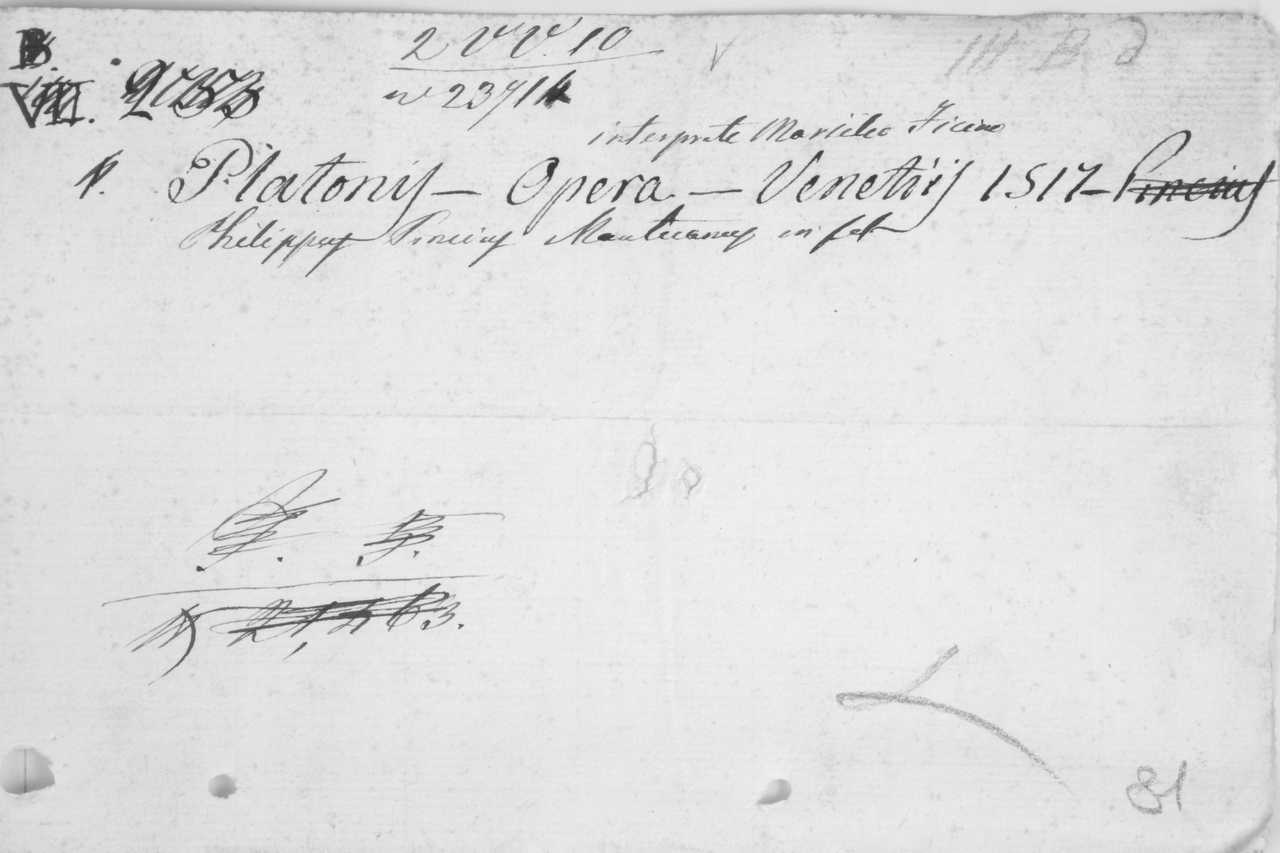 B.
2 VV. 10
III B d
VIII.
n 23714
interprete Marsilio Ficino
1. Platonis – Opera – Venetiis 1517 – Pincius
Philippus Pincius Mantuanus in fol
81